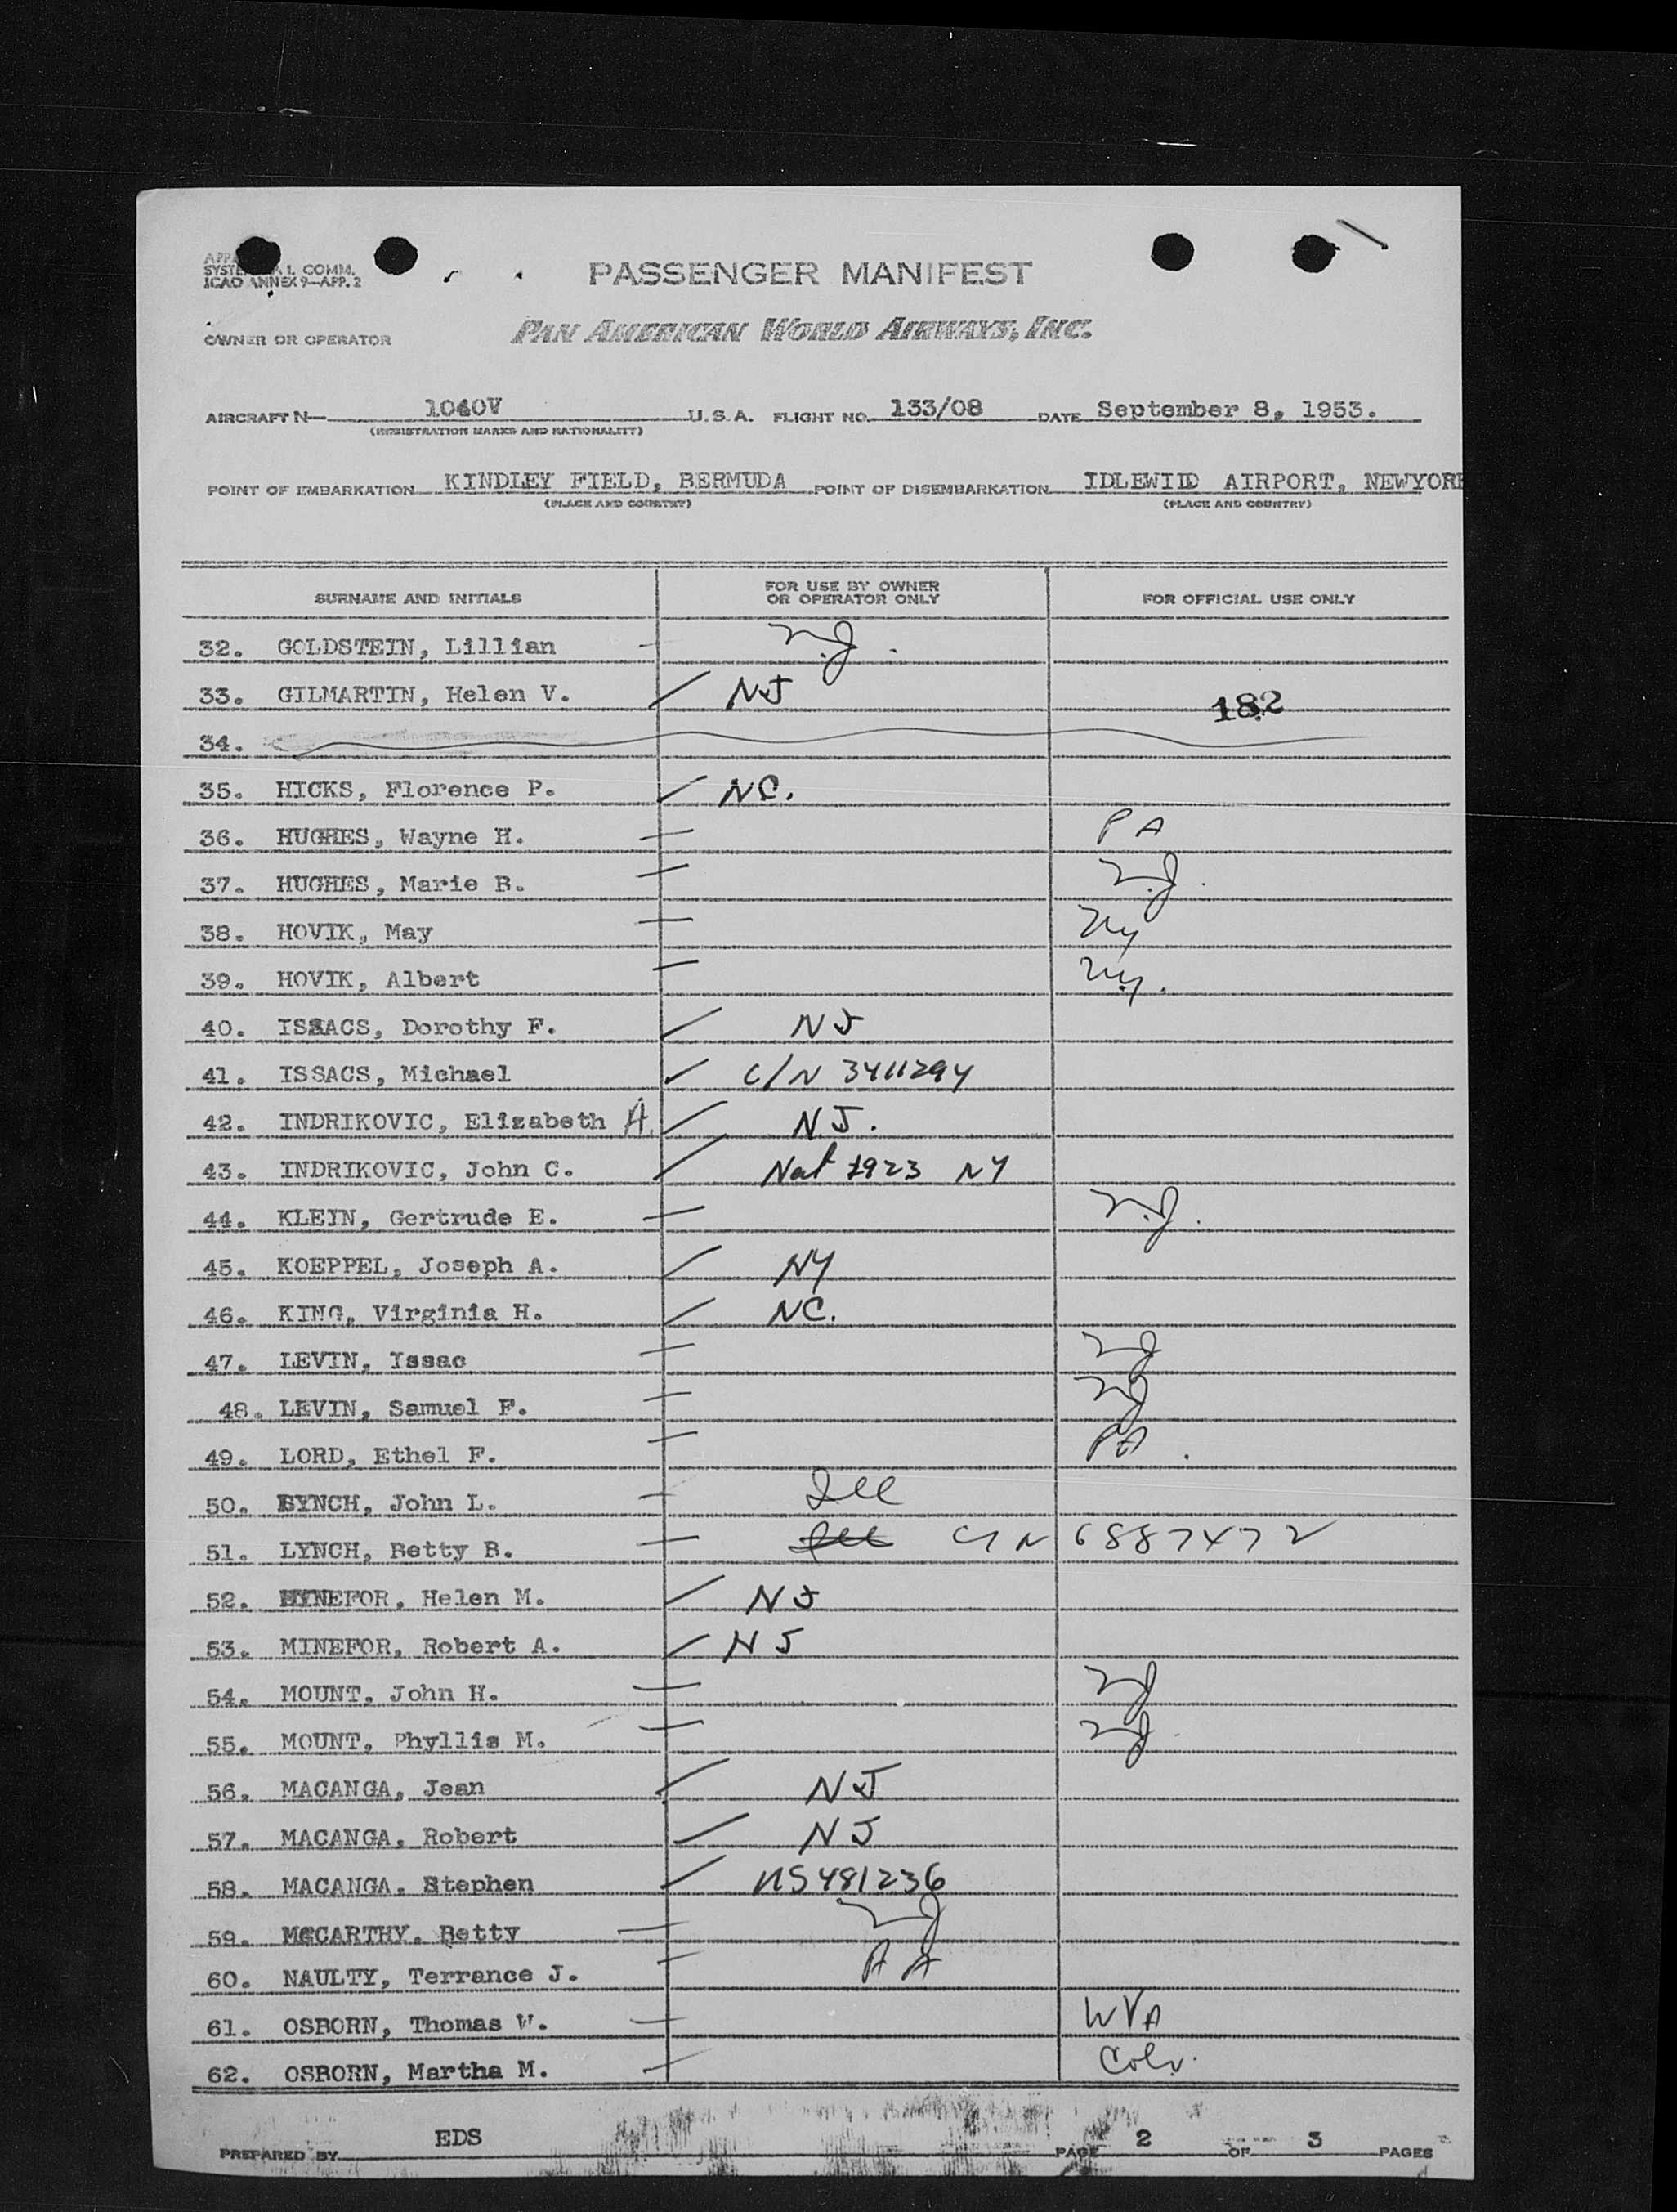 APP
SYSTE AL COMM.
ICAO ANNEX 9—APP. 2
PASSENGER MANIFEST
OWNER OR OPERATOR PAN AMERICAN WORLD AIRWAYS, INC.
AIRCRAFT N— 1040V U.S.A. FLIGHT NO. 133/08 DATE September 8, 1953.
(REGISTRATION MARKS AND NATIONALITY)
POINT OF EMBARKATION KINDLEY FIELD, BERMUDA POINT OF DISEMBARKATION IDLEWILD AIRPORT, NEWYORK
(PLACE AND COUNTRY) (PLACE AND COUNTRY)
SURNAME AND INITIALS FOR USE BY OWNER OR OPERATOR ONLY FOR OFFICIAL USE ONLY
32. GOLDSTEIN, Lillian N.J.
33. GILMARTIN, Helen V. NJ 182
34.
35. HICKS, Florence P. NC.
36. HUGHES, Wayne H. PA
37. HUGHES, Marie B. N.J.
38. HOVIK, May Ny
39. HOVIK, Albert N.y.
40. ISSACS, Dorothy F. NJ
41. ISSACS, Michael C/N 3411294
42. INDRIKOVIC, Elizabeth A. NJ.
43. INDRIKOVIC, John C. Nat 1923 NY
44. KLEIN, Gertrude E. N.J.
45. KOEPPEL, Joseph A. NY
46. KING, Virginia H. NC.
47. LEVIN, Issac NJ
48. LEVIN, Samuel F. NJ
49. LORD, Ethel F. PA.
50. LYNCH, John L. Ill
51. LYNCH, Betty B. Ill C/N 6887472
52. MINEFOR, Helen M. NJ
53. MINEFOR, Robert A. NJ
54. MOUNT, John H. NJ
55. MOUNT, Phyllis M. NJ
56. MACANGA, Jean NJ
57. MACANGA, Robert NJ
58. MACANGA, Stephen NS481236
59. McCARTHY, Betty NJ
60. NAULTY, Terrance J. PA
61. OSBORN, Thomas W. WVA
62. OSBORN, Martha M. Colo.
PREPARED BY EDS PAGE 2 OF 3 PAGES